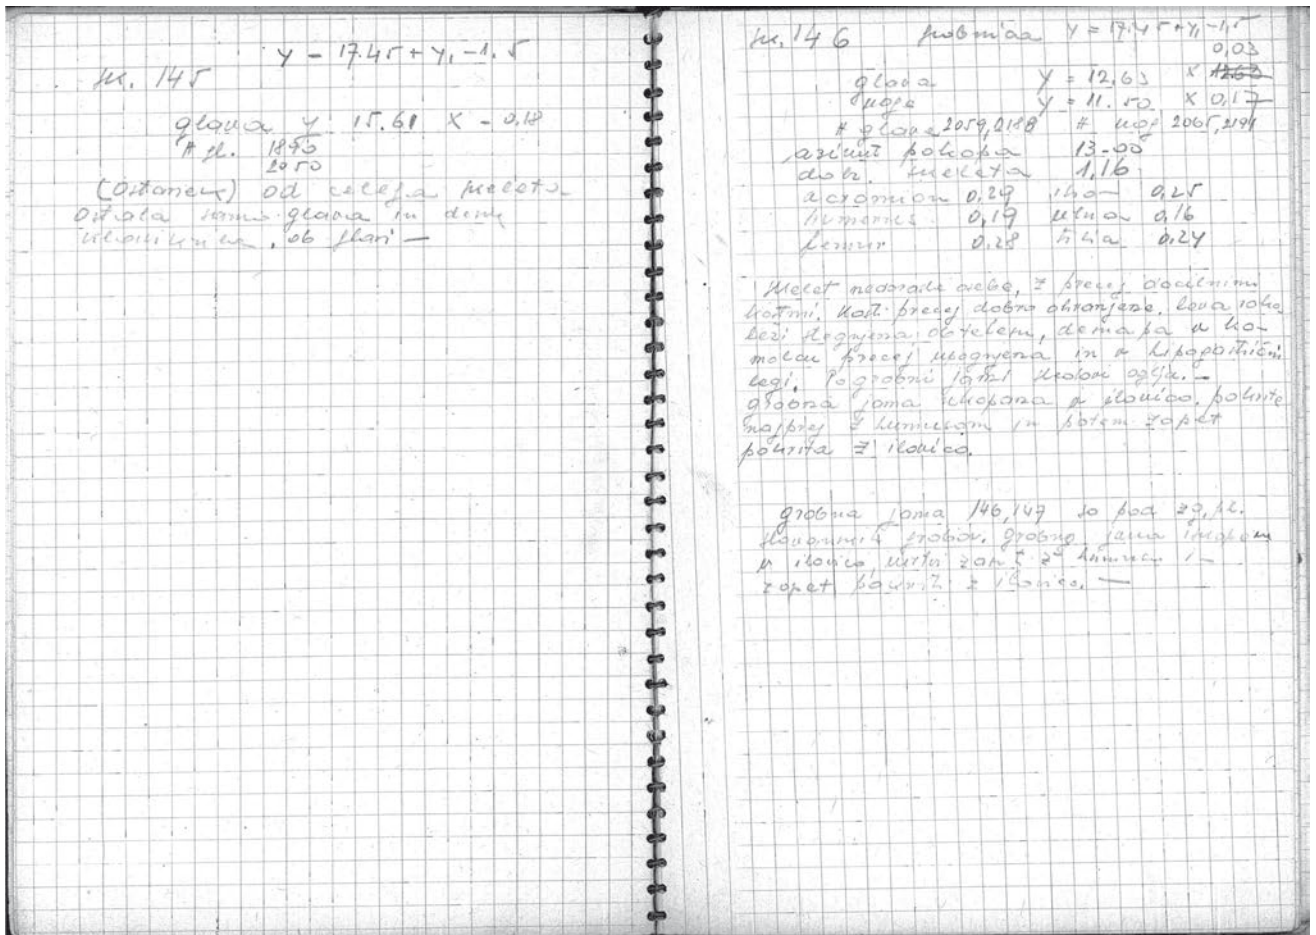 Y = 17.45 + Y, -1.5
sk. 145
glava Y 15.61 X - 0.18
# gl. 1890
2050
(Ostanek) od celega skeleta
ostala samo glava in desna
klavikula, ob glavi —
sk. 146 grobnica Y = 17.45 + Y, -1,5
0,03
glava Y = 12.63 X
noge Y = 11.50 X 0,17
# glave 2059, 2188 # nog 2065, 2191
azimut pokopa 13-00
dolž. skeleta 1,16
acromion 0.29 0,25
humerus 0,19 ulna 0,16
femur 0.28 tibia 0.24
Skelet nedorasle osebe, z precej
kostmi. Kosti precej dobro ohranjene, leva roka
leži stegnjena ob telesu, desna pa v ko-
molcu precej in v
legi. Po grobni jami sledovi oglja. —
grobna jama skopana v ilovico, pokrita
najprej z humusom in potem zopet
pokrita z ilovico.
grobna jama 146, 147 so pod zg. pl.
grobov. grobna jama
v ilovico, z humusom in
zopet z ilovico. —